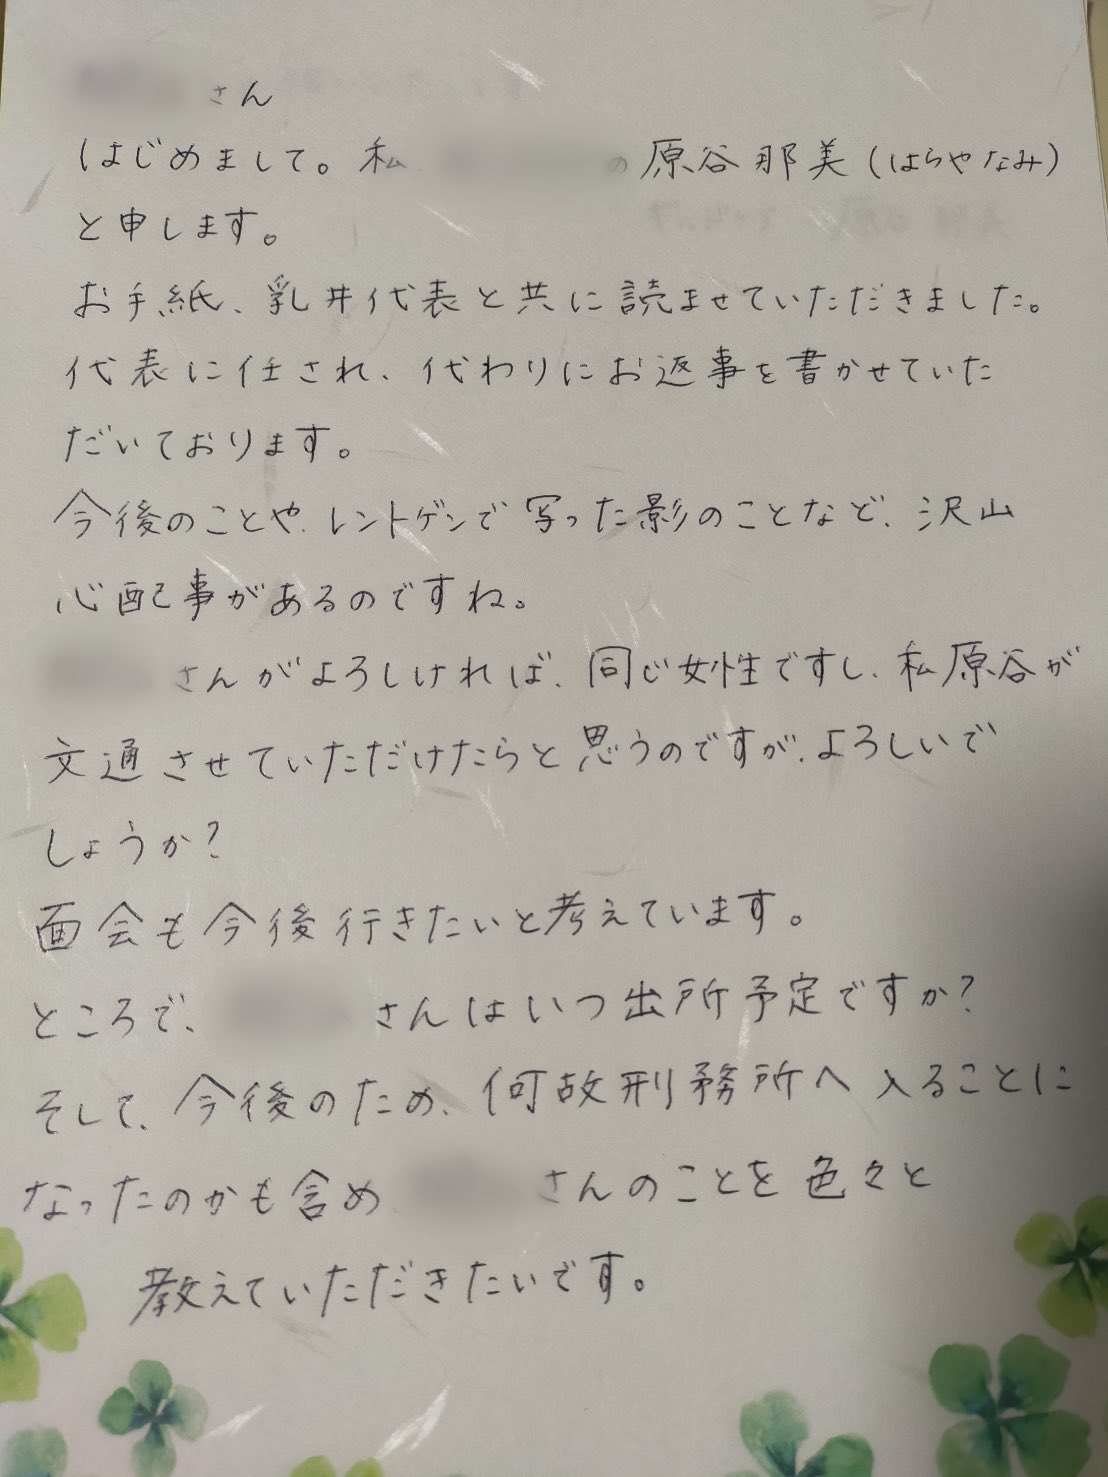 さん
はじめまして。私、の原谷那美(はらやなみ)
と申します。
お手紙、乳井代表と共に読ませていただきました。
代表に任され、代わりにお返事を書かせていた
だいております。
今後のことや、レントゲンで写った影のことなど、沢山
心配事があるのですね。
さんがよろしければ、同じ女性ですし、私原谷が
文通させていただけたらと思うのですが、よろしいで
しょうか?
面会も今後行きたいと考えています。
ところで、さんはいつ出所予定ですか?
そして、今後のため、何故刑務所へ入ることに
なったのかも含め、さんのことを色々と
教えていただきたいです。